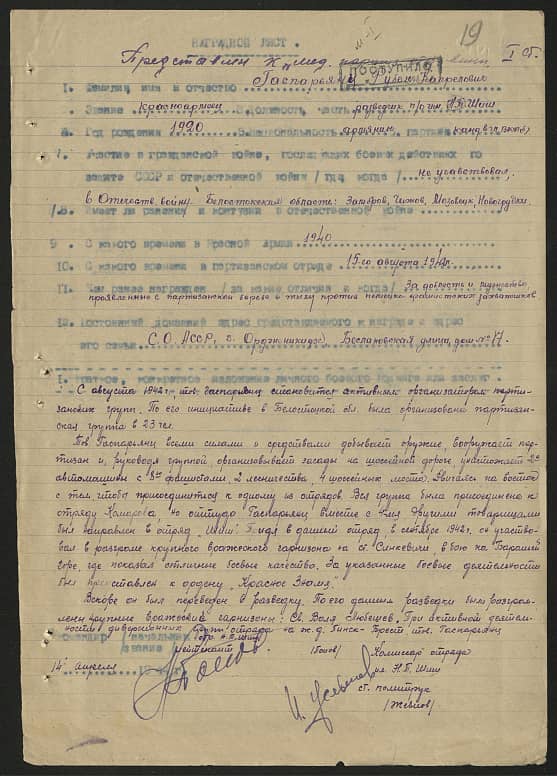 19
НАГРАДНОЙ ЛИСТ.
Представлен к мед. I ст.
ПОСТУПИЛО
1. Фамилия имя и отчество Гаспарьянц
Звание красноармеец 3. Должность, часть разведчик п/отр.
4. Год рождения 1920 5. Национальность армянин 6. партийн.
7. Участие в гражданской войне, последующих боевых действиях по
защите СССР и отечественной войне /где, когда/ не участвовал,
в Отечеств. войну. Белостокская область: Замбров, Мазовецк, Новогрудк
8. Имеет ли ранения и контузии в отечественной войне
9. С какого времени в Красной Армии 1940
10. С какого времени в партизанском отряде 15го августа 1942г.
11. Чем ранее награжден /за какие отличия и когда/ За доблесть и мужество,
проявленные в партизанской борьбе в тылу против немецко фашистских захватчиков
12. Постоянный домашний адрес представляемого к награде и адрес
его семьи С.О.АССР, г. Орджоникидзе, Беслановская улица, дом № 17.
1. Краткое, конкретное изложение личного боевого подвига или заслуг.
С августа 1942г. тов. Гаспарьянц становится активным организатором парти-
занских групп. По его инициативе в Белостоцкой обл. была организована партизан-
ская группа в 23 чел.
Тов Гаспарьянц всеми силами и средствами добывает оружие, вооружает пар-
тизан и, руководя группой, организовывает засады на шоссейной дороге, уничтожает 2е
автомашины с 8ю фашистами, 2 лесничества, 4 шоссейных моста. Двигаясь на восток
с тем, чтобы присоединиться к одному из отрядов. Вся группа была присоединена к
отряду Комарова, но оттуда Гаспарьянц вместе с другими товарищами
был направлен в отряд "Шиш". Будя в данный отряд в сентябре 1942г. он участво-
вал в разгроме крупного вражеского гарнизона на ст. Синкевичи, в бою на Бараньей
горе, где показал отличные боевые качества. За указанные боевые деятельности
был представлен к ордену "Красное Знамя".
Вскоре он был переведен в разведку. По его данным разведки были разгром-
лены крупные вражеские гарнизоны: Св. Воля, Любешев. При активной деятель-
ности диверсионных групп отряда на ж.д. Пинск-Брест тов. Гаспарьянц
Командир /начальник
звание лейтенант
14 апреля
Комиссар отряда
им. Н.П. Шиш
ст. политрук